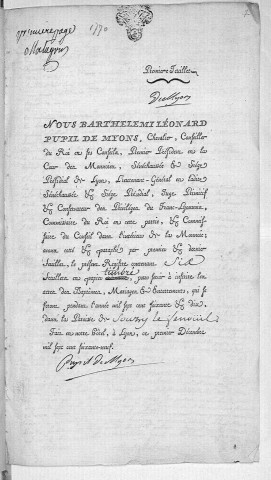 premiere page
1770
Premier Feuillet
De Myons
NOUS BARTHELEMI LÉONARD
PUPIL DE MYONS, Chevalier, Conseiller
du Roi en ses Conseils, Premier Président en la
Cour des Monnoies, Sénéchaussée & Siège
Présidial de Lyon, Lieutenant-Général en ladite
Sénéchaussée & Siège Présidial, Juge Primitif
& Conservateur des Privilèges du Franc-Lyonnois,
Commissaire du Roi en cette partie, & Commis-
saire du Conseil dans l'intérieur de la Monnoie;
avons coté & paraphé par premier & dernier
Feuillet, le présent Registre contenant Six
Feuillets en papier timbré, pour servir à inscrire les
actes des Baptêmes, Mariages & Enterremens, qui se
feront pendant l'année mil sept cent soixante & dix,
dans la Paroisse de Souzy
Fait en notre Hôtel, à Lyon, ce premier Décembre
mil sept cent soixante-neuf.
Pupil de Myons